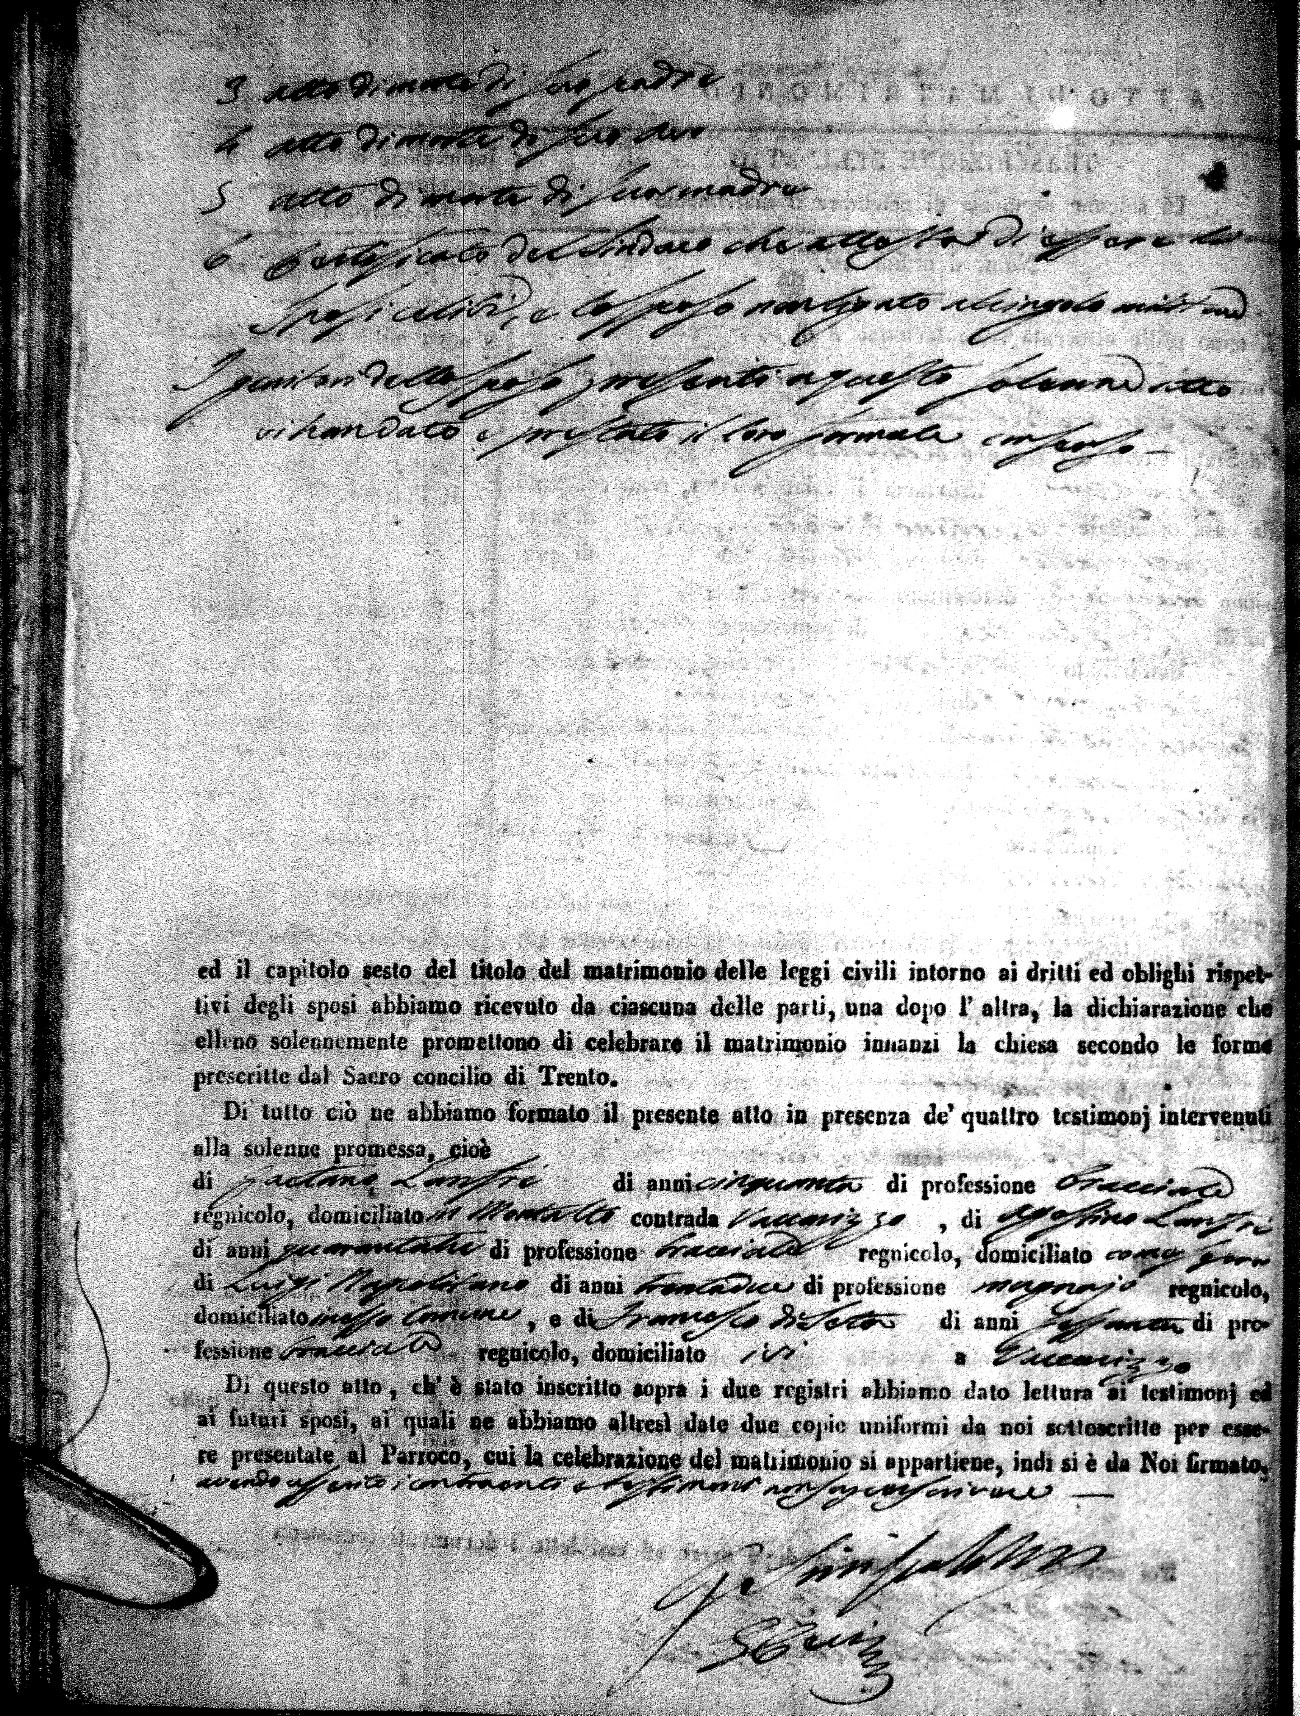 3 atto di morte di suo padre
4 atto di morte di suo avo
5 atto di morte di sua madre
6 Certificato del Sindaco che attesta di essere li
Sposi celibi, e lo sposo non ligato al cingolo militare
I genitori dello sposo presenti a questo solenne atto
vi han dato e prestato il loro formale consenso —
ed il capitolo sesto del titolo del matrimonio delle leggi civili intorno ai dritti ed oblighi rispet-
tivi degli sposi abbiamo ricevuto da ciascuna delle parti, una dopo l' altra, la dichiarazione che
elleno solennemente promettono di celebrare il matrimonio innanzi la chiesa secondo le forme
prescritte dal Sacro concilio di Trento.
Di tutto ciò ne abbiamo formato il presente atto in presenza de' quattro testimonj intervenuti
alla solenne promessa, cioè
di Gaetano Lanfri di anni cinquanta di professione bracciale
regnicolo, domiciliato in Montalto contrada Vaccarizzo , di Agostino Lanfri
di anni quarantatre di professione bracciale regnicolo, domiciliato come sopra
di Luigi Napolitano di anni trentadue di professione mugnajo regnicolo,
domiciliato in esso Comune , e di Francesco di Seta di anni sessanta di pro-
fessione bracciale regnicolo, domiciliato ivi a Vaccarizzo
Di questo atto, ch' è stato inscritto sopra i due registri abbiamo dato lettura ai testimonj ed
ai futuri sposi, ai quali ne abbiamo altresì date due copie uniformi da noi sottoscritte per esse-
re presentate al Parroco, cui la celebrazione del matrimonio si appartiene, indi si è da Noi firmato,
avendo asserito i contraenti e testimoni non saper scrivere —